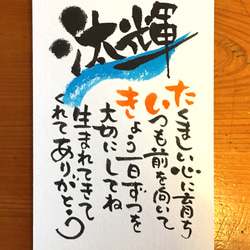 汰輝
たくましい心に育ち
いつも前を向いて
きょう一日ずつを
大切にしてね
生まれてきて
くれてありがとう